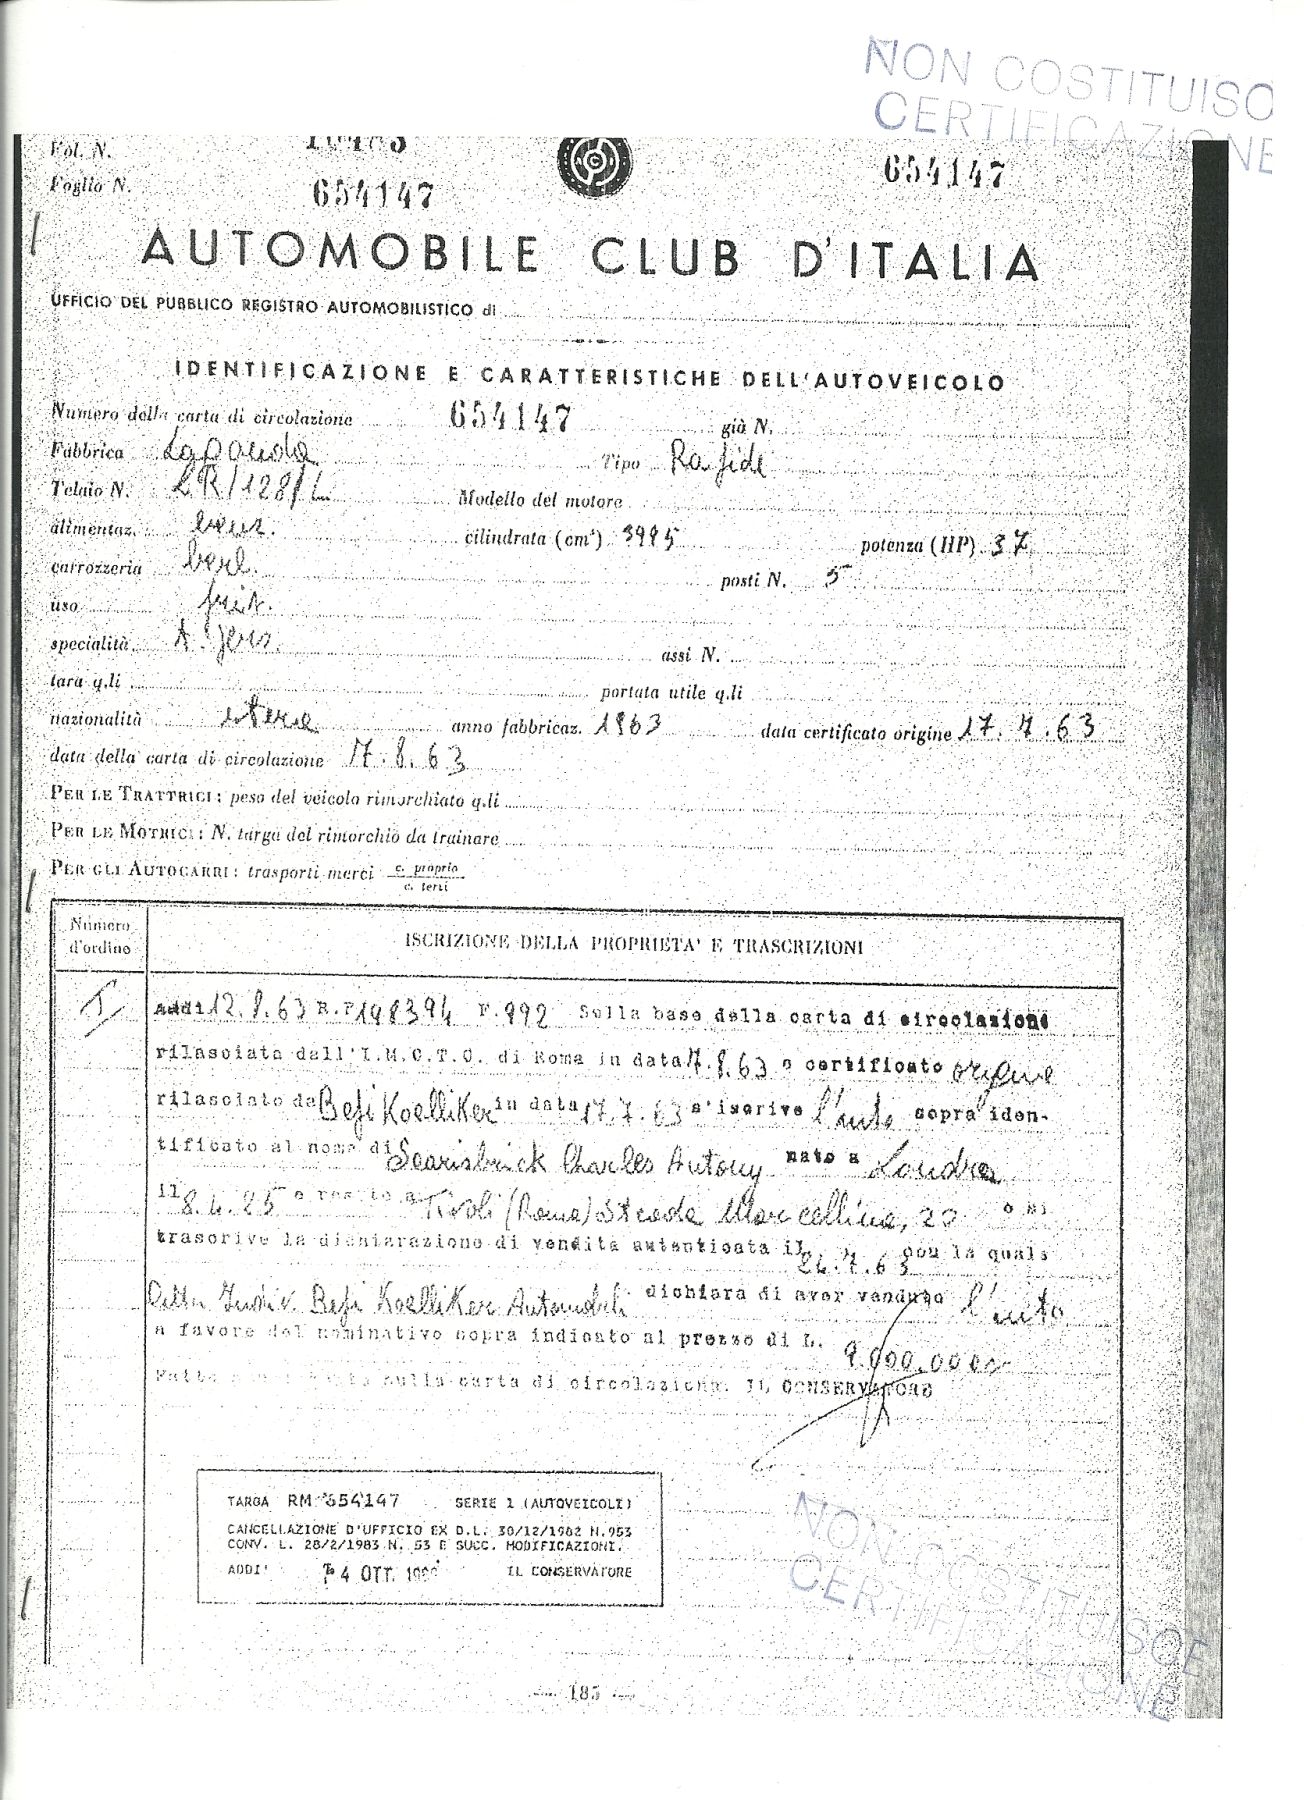 NON COSTITUISC
CERTIFICAZIONE
Vol. N.
Foglio N. 654147
654147
AUTOMOBILE CLUB D'ITALIA
UFFICIO DEL PUBBLICO REGISTRO AUTOMOBILISTICO di
IDENTIFICAZIONE E CARATTERISTICHE DELL'AUTOVEICOLO
Numero della carta di circolazione 654147 già N.
Fabbrica Lagonda Tipo Rapide
Telaio N. LR/128/L Modello del motore
alimentaz. benz. cilindrata (cm³) 3995 potenza (HP) 37
carrozzeria berl. posti N. 5
uso priv.
specialità T. Pers. assi N.
tara q.li portata utile q.li
nazionalità estera anno fabbricaz. 1963 data certificato origine 17.7.63
data della carta di circolazione 17.8.63
PER LE TRATTRICI: peso del veicolo rimorchiato q.li
PER LE MOTRICI: N. targa del rimorchio da trainare
PER GLI AUTOCARRI: trasporti merci c. proprio
c. terzi
Numero d'ordine
ISCRIZIONE DELLA PROPRIETA' E TRASCRIZIONI
Addi 12.8.63 R.P. 198394 F. 992 Sulla base della carta di circolazione
rilasciata dall'I.M.C.T.C. di Roma in data 17.8.63 e certificato origine
rilasciato da Befi Koelliker in data 17.7.63 s'iscrive l'auto sopra iden-
tificato al nome di Scarisbrick Charles Antony nato a Londra
il 8.4.25 e resid. a Tivoli (Roma) Strada Marcellina, 20 e si
trascrive la dichiarazione di vendita autenticata il 24.7.63 con la quale
Ditta Indiv. Befi Koelliker Automobili dichiara di aver venduto l'auto
a favore del nominativo sopra indicato al prezzo di L. 9.000.000
Fatto sulla carta di circolazione. IL CONSERVATORE
TARGA RM 654147 SERIE 1 (AUTOVEICOLI)
CANCELLAZIONE D'UFFICIO EX D.L. 30/12/1982 N.953
CONV. L. 28/2/1983 N. 53 E SUCC. MODIFICAZIONI.
ADDI' 4 OTT. IL CONSERVATORE
NON COSTITUISCE
CERTIFICAZIONE
— 185 —